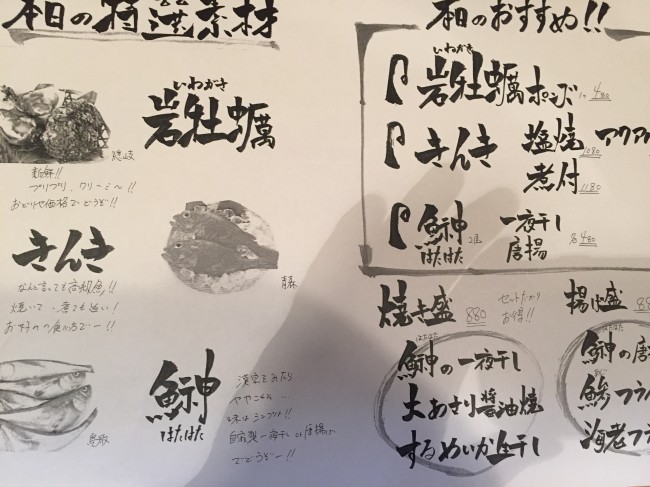 本日の特選素材
いわがき
岩牡蠣
隠岐
新鮮!!
プリプリ、クリーミ〜!!
おどりや価格でどうぞ!!
きんき
青森
なんと言っても高級魚!!
焼いて、煮ても追い!
お好みの食べ方でー!!
鰰
はたはた
鳥取
味はシンプル!!
自家製一夜干し or 唐揚げ
でどうぞー!!
本日のおすすめ!!
いわがき
岩牡蠣ポンズ 1ヶ 480
きんき 塩焼 1080
煮付 1180
鰰 2匹 一夜干し
はたはた 唐揚 各480
焼き盛 880
セットだから
お得!!
はたはた
鰰の一夜干し
大あさり醤油焼
するめいか生干し
揚げ盛
はたはた
鰰の唐
鯵フラ
海老フラ